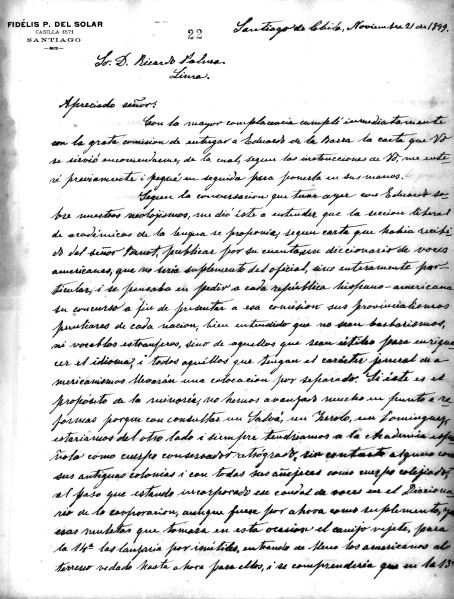 FIDÉLIS P. DEL SOLAR
CASILLA 1571
SANTIAGO
22
Santiago de Chile, Noviembre 21 de 1899.
Sr. D. Ricardo Palma.
Lima.
Apreciado señor:
Con la mayor complacencia cumplí inmediatamente
con la grata comision de entregar a Eduardo de la Barra la carta que Vd
se sirvió encomendarme, de la cual, segun las instrucciones de Vd, me ente
ré previamente i pegué en seguida para ponerla en sus manos.
Segun la conversacion que tuve ayer con Eduardo so-
bre nuestros neolojismos, me dió éste a entender que la seccion liberal
de académicos de la lengua se proponia, segun carta que habia recibi
do del señor Benot, publicar por su cuenta un diccionario de voces
americanas, que no seria suplemento del oficial, sino enteramente par-
ticular, i se pensaba en pedir a cada república hispano-americana
su concurso a fin de presentar a esa comision sus provincialismos
peculiares de cada nacion, bien entendido que no sean barbarismos,
ni vocablos estranjeros, sino de aquellos que sean útiles para enrique
cer el idioma, i todos aquellos que tengan el carácter jeneral de a-
mericanismos llevarán una colocacion por separado. Si éste es el
propósito de la minoría, no hemos avanzado mucho en punto a re
formas porque con consultar un Salvá, un Terreros, un Dominguez,
estaríamos del otro lado i siempre tendríamos a la Academia espa
ñola como cuerpo conservador retrógrado, sin contacto alguno con
sus antiguas colonias i con todas sus añejeces como cuerpo colejiado,
al paso que estando incorporado ese caudal de voces en el Dicciona
rio de la corporacion, aunque fuera por ahora como suplemento,
esas muletas que tomara en esta ocasion el vejete, para
la 14ª las lanzaria por inútiles, entrando de lleno los americanos al
terreno vedado hasta ahora para ellos, i se comprenderia que en la 13ª